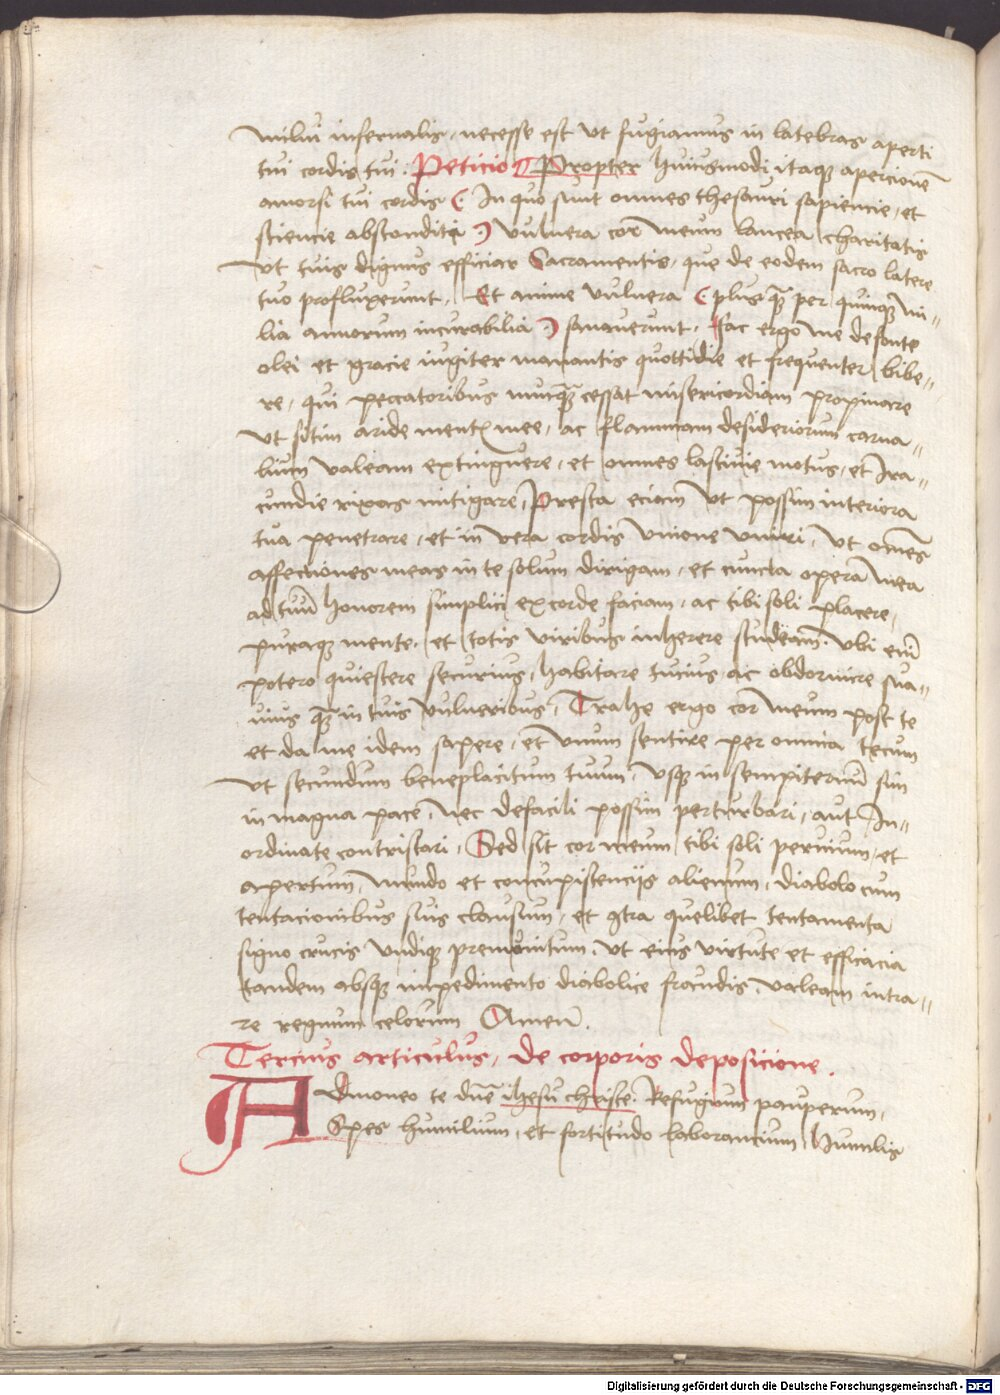 milui infernalis, necesse est vt fugiamus in latebras aperti
tui cordis tui. Peticio Propter huiusmodi itaqꝫ apercionē
amorsi tui cordis ( In quo sunt omnes thesauri sapiencie, et
sciencie absconditi ) vulnera cor meum lancea charitatis
vt tuis dignus efficiar Sacramentis, que de eodem sacro latere
tuo profluxerunt, Et anime vulnera ( plus qꝫ per quinqꝫ mi=
lia annorum incurabilia ) sanauerunt. fac ergo me de fonte
olei et gracie iugiter manantis quottidie et frequenter bibe=
re, qui peccatoribus nunqꝫ cessat misericordiam propinare
vt sitim aride mentꝭ mee, ac flammam desideriorum carna=
lium valeam extinguere, et omnes lasciuie motus, et Ira=
cundie rixas mitigare, Presta eciam vt possim interiora
tua penetrare, et in vera cordis vnione vniri, vt om̄es
affectiones meas in te solum dirigam, et cuncta opera mea
ad tuū honorem simplici ex corde faciam, ac tibi soli placere,
puraqꝫ mente, et totis viribus inherere studeam. vbi eni̅
potero quiescere securius, habitare tucius, ac obdormire sua=
uius qꝫ in tuis vulneribus, Trahe ergo cor meum post te
et da me idem sapere, et vnum sentire per omnia tecum
vt secundum beneplacitum tuum, vsqꝫ in sempiternū sim
in magna pace, nec defacili possim perturbari, aut In=
ordinate contristari, Sed sit cor meum tibi soli peruium, et
apertum, mundo et concupiscencijs alienum, diabolo cum
tentacionibus suis clausum, et ꝯtra quelibet tentamenta
signo crucis vndiqꝫ premunitum, vt eius virtute et efficacia
tandem absqꝫ impedimento diabolice fraudis, valeam intra=
re regnum celorum Amen̄.
Tercius articulus, de corporis deposicione.
Admoneo te dnē ihesu christe. Refugium pauperum,
Spes humilium, et fortitudo laborancium, humilis
Digitalisierung gefördert durch die Deutsche Forschungsgemeinschaft - DFG